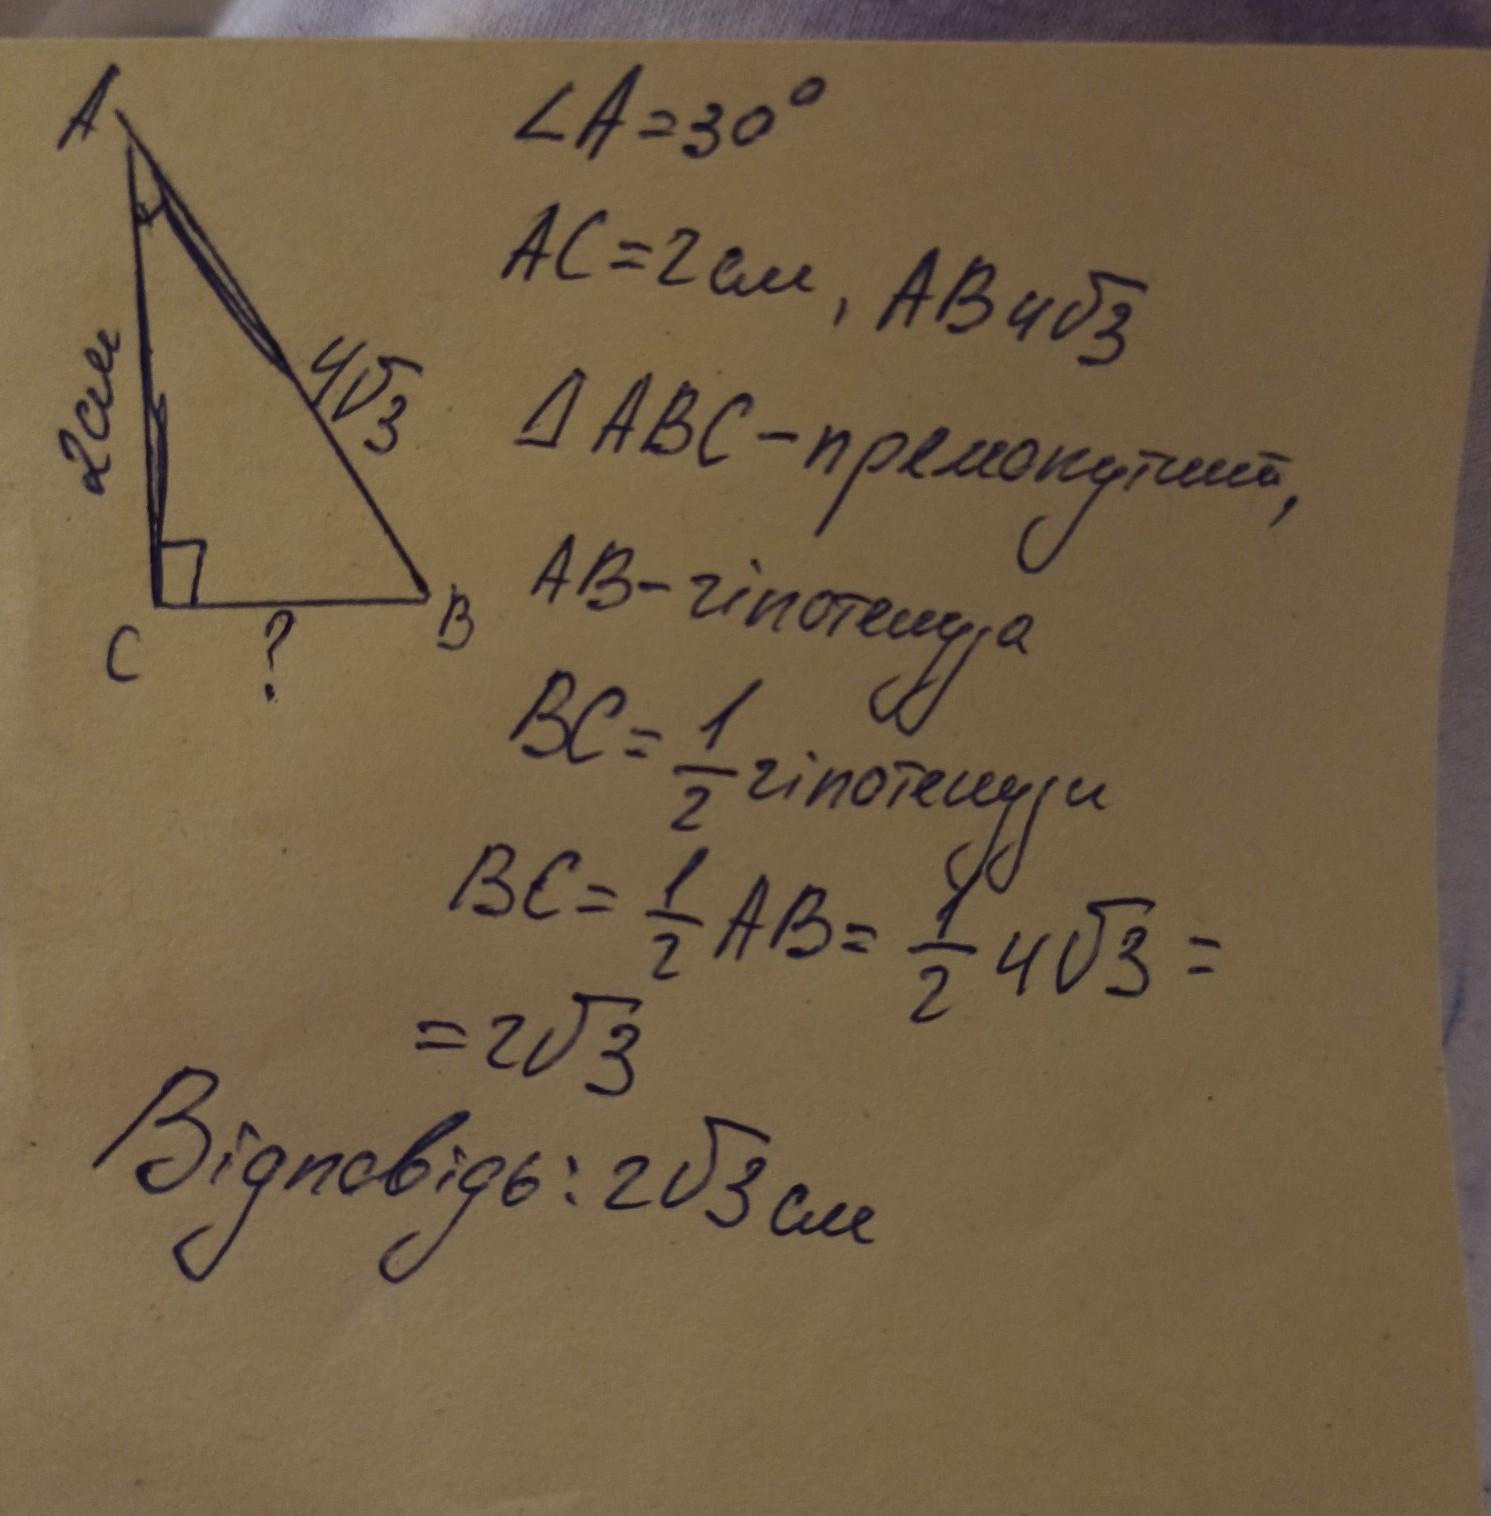 A
∠A=30°
AC=2см, AB 4√3
2см
4√3
ΔABC-премокутний,
AB-гіпотенуза
C
?
B
BC=1/2 гіпотенузи
BC=1/2 AB=1/2 4√3=
=2√3
Відповідь: 2√3 см